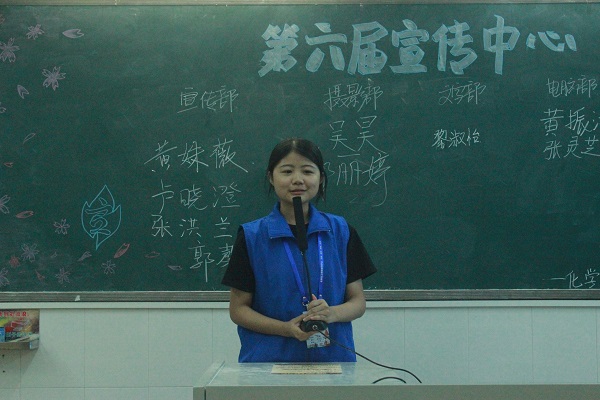 第六届宣传中心
宣传部
摄影部
文字部
电脑部
黄姝薇
吴昊
黎淑怡
黄振
卢晓澄
丽婷
张灵芝
张洪兰
郭
宣
一化学